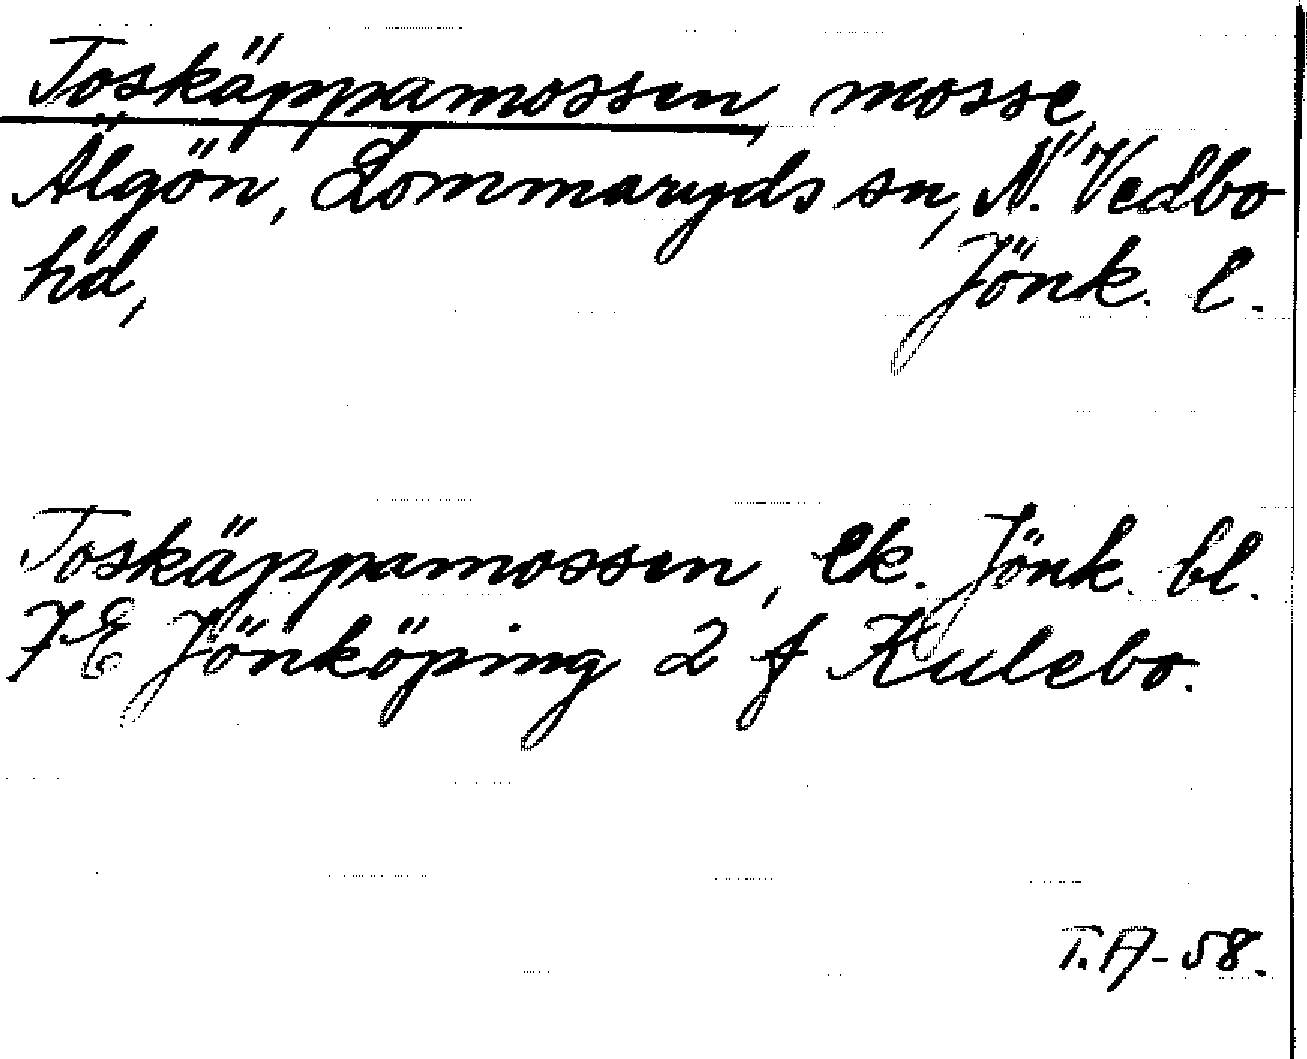 Toskäppamossen, mosse,
Älgön, Lommaryds sn, N. Vedbo
hd, Jönk. l.
Toskäppamossen, ek. Jönk. bl.
7E Jönköping 2 f Kulebo.
T.A-58.